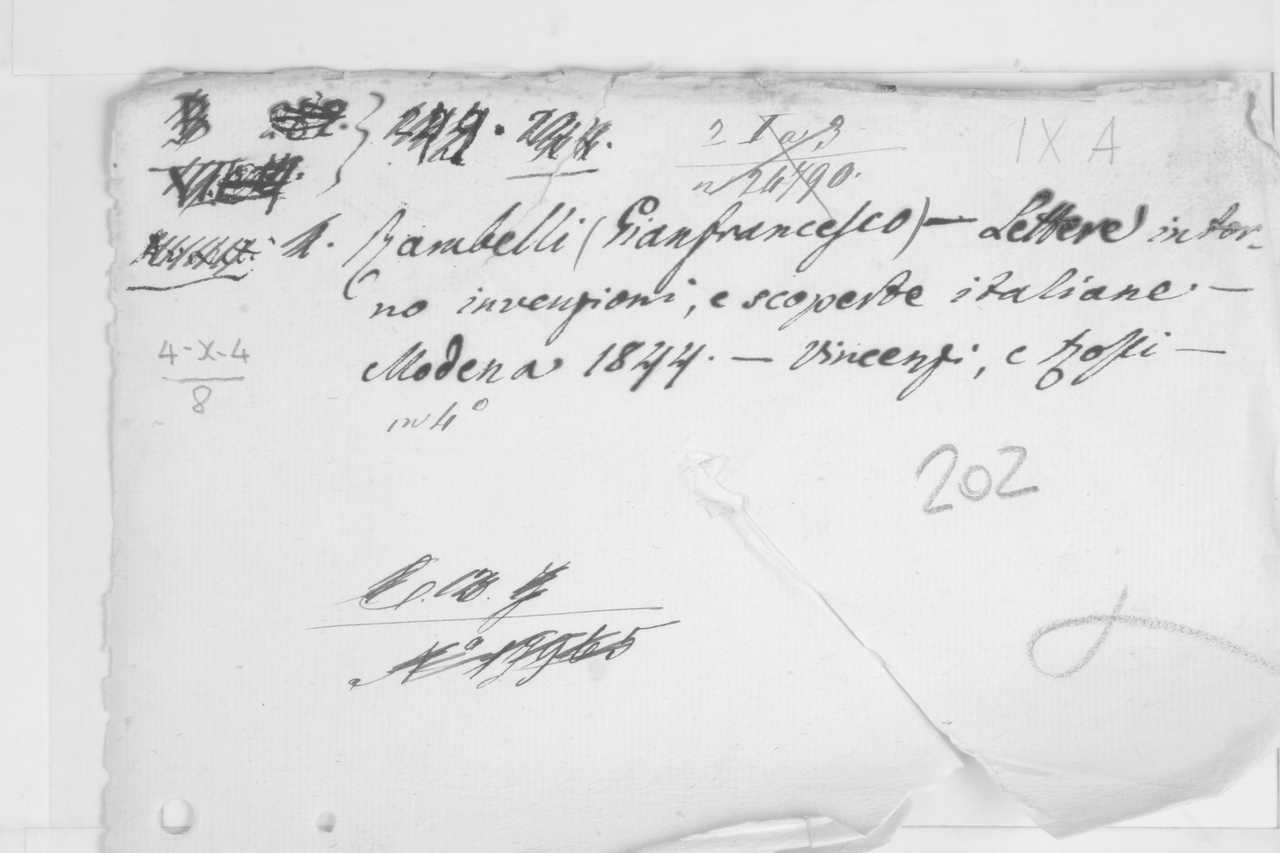 2 I a, 3
IX A
n 24790.
h. Rambelli (Gianfrancesco) — Lettere intor-
no invenzioni, e scoperte italiane. —
Modena 1844. — Vincenzi, e Rossi —
in 4°
4-X-4
8
202
N° 19965